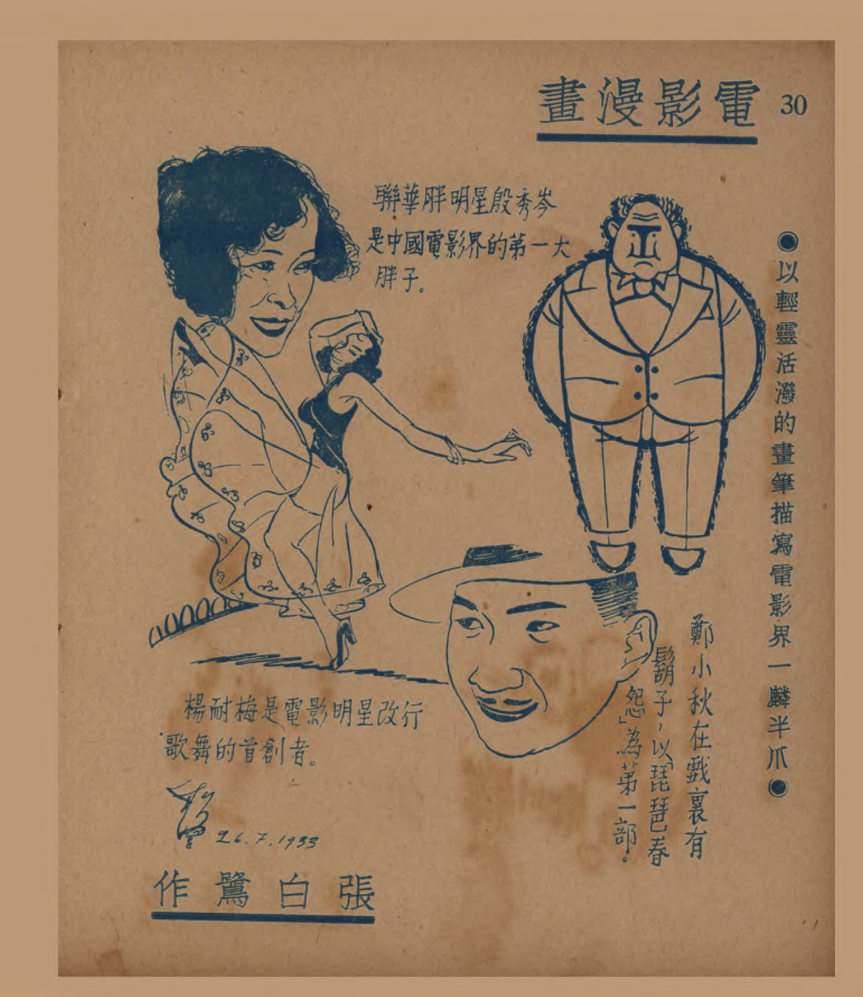 30
電影漫畫
●以輕靈活潑的畫筆描寫電影界一麟半爪●
聯華胖明星殷秀岑
是中國電影界的第一大
胖子。
鄭小秋在戲裏有
鬍子，以「琵琶春
怨」為第一部。
楊耐梅是電影明星改行
歌舞的首創者。
26.7.1933
張白鷺作